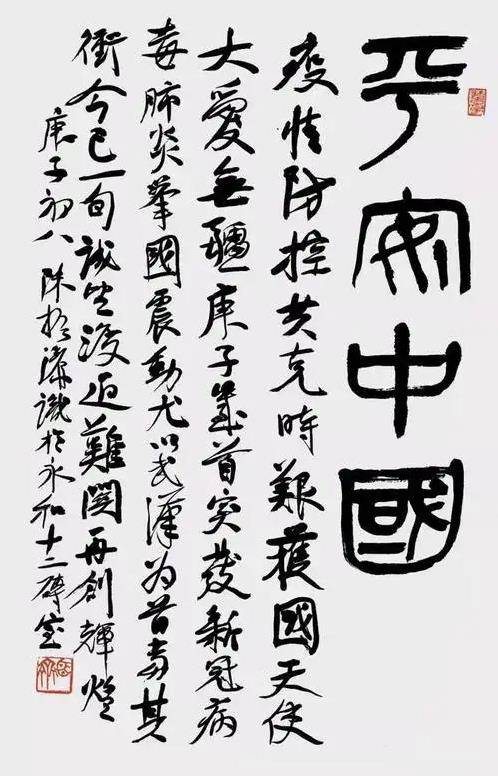 平安中國
疫情防控共克時艱護國天使
大愛無疆庚子歲首突發新冠病
毒肺炎舉國震動尤以武漢為首當其
衝今已一旬誠望渡過難關再創輝煌
庚子初八 陳振濂識於永和十二磚室